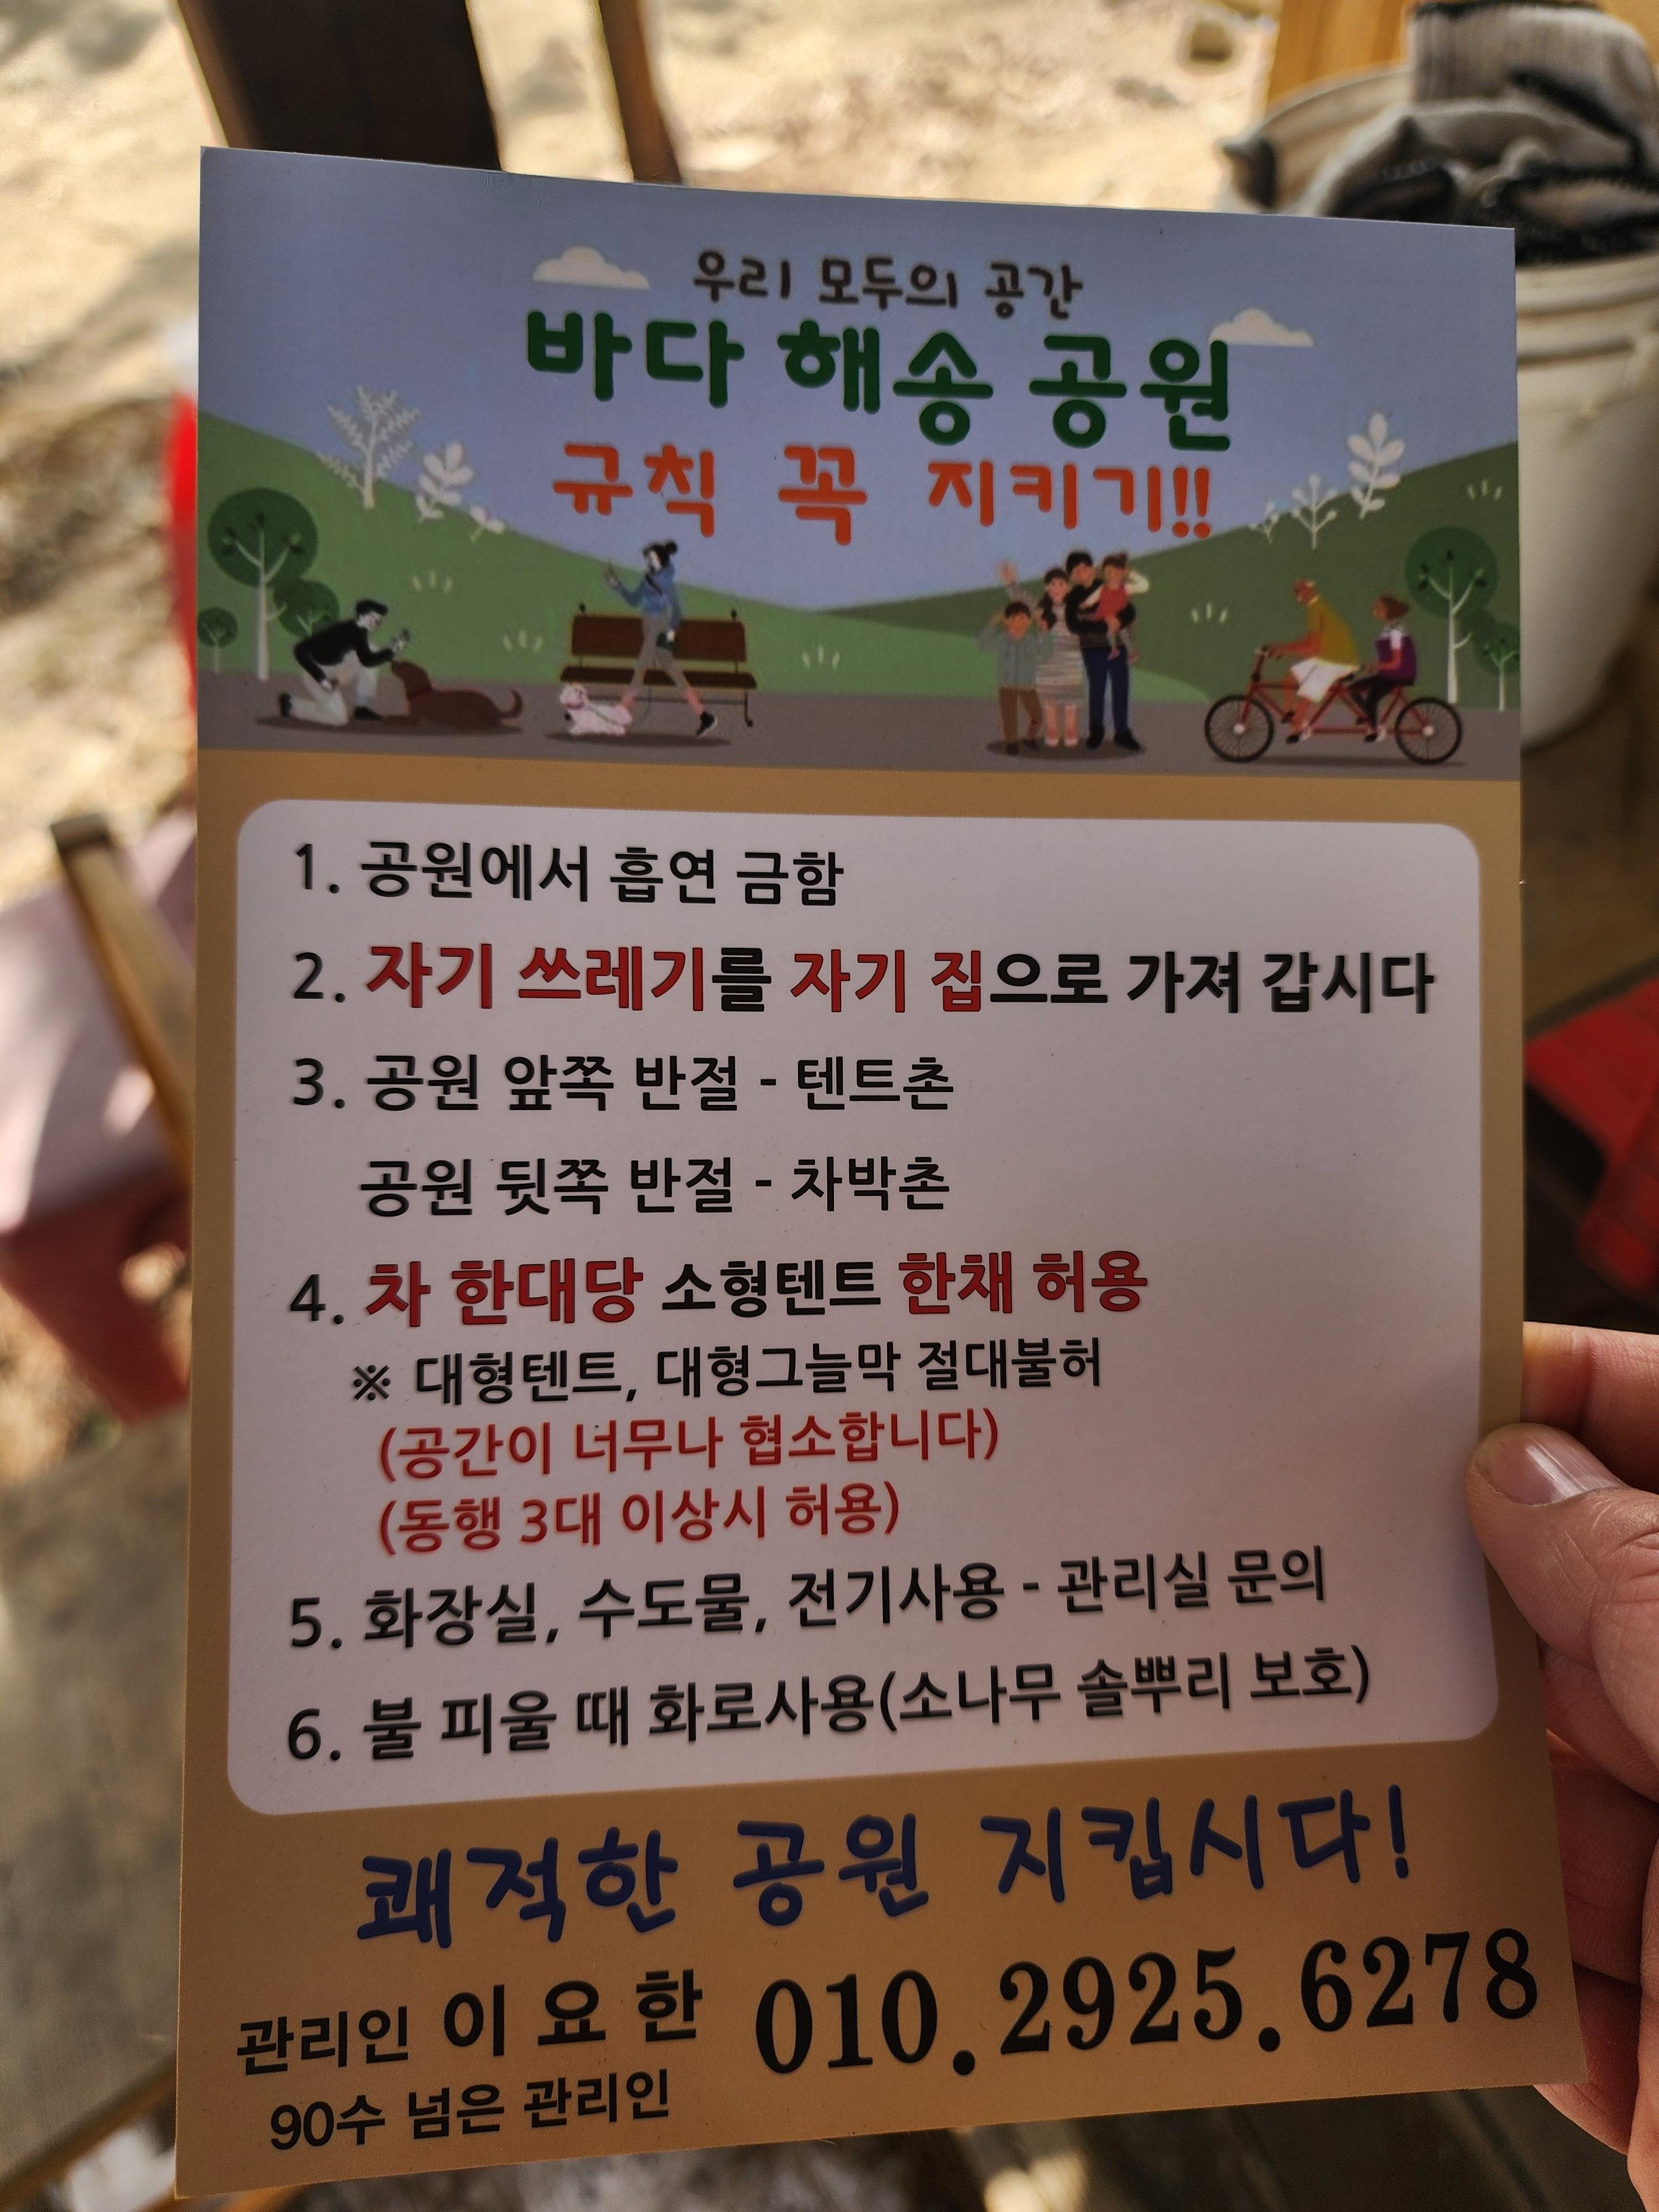 우리 모두의 공간
바다 해송 공원
규칙 꼭 지키기!!
1. 공원에서 흡연 금함
2. 자기 쓰레기를 자기 집으로 가져 갑시다
3. 공원 앞쪽 반절 - 텐트촌
공원 뒷쪽 반절 - 차박촌
4. 차 한대당 소형텐트 한채 허용
※ 대형텐트, 대형그늘막 절대불허
(공간이 너무나 협소합니다)
(동행 3대 이상시 허용)
5. 화장실, 수도물, 전기사용 - 관리실 문의
6. 불 피울 때 화로사용(소나무 솔뿌리 보호)
쾌적한 공원 지킵시다!
관리인 이요한 010.2925.6278
90수 넘은 관리인